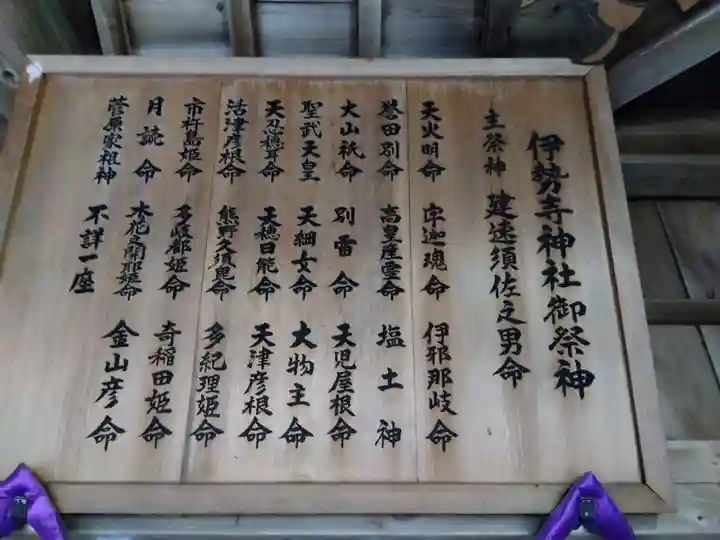 伊勢寺神社御祭神
主祭神 建速須佐之男命
天火明命 宇迦魂命 伊邪那岐命
誉田別命 高皇産霊命 塩土神
大山祇命 別雷命 天児屋根命
聖武天皇 天鈿女命 大物主命
天忍穂耳命 天穂日能命 天津彦根命
活津彦根命 熊野久須毘命 多紀理姫命
市杵島姫命 多岐都姫命 奇稲田姫命
月読命 木花之開耶姫命 金山彦命
菅原家祖神 不詳一座